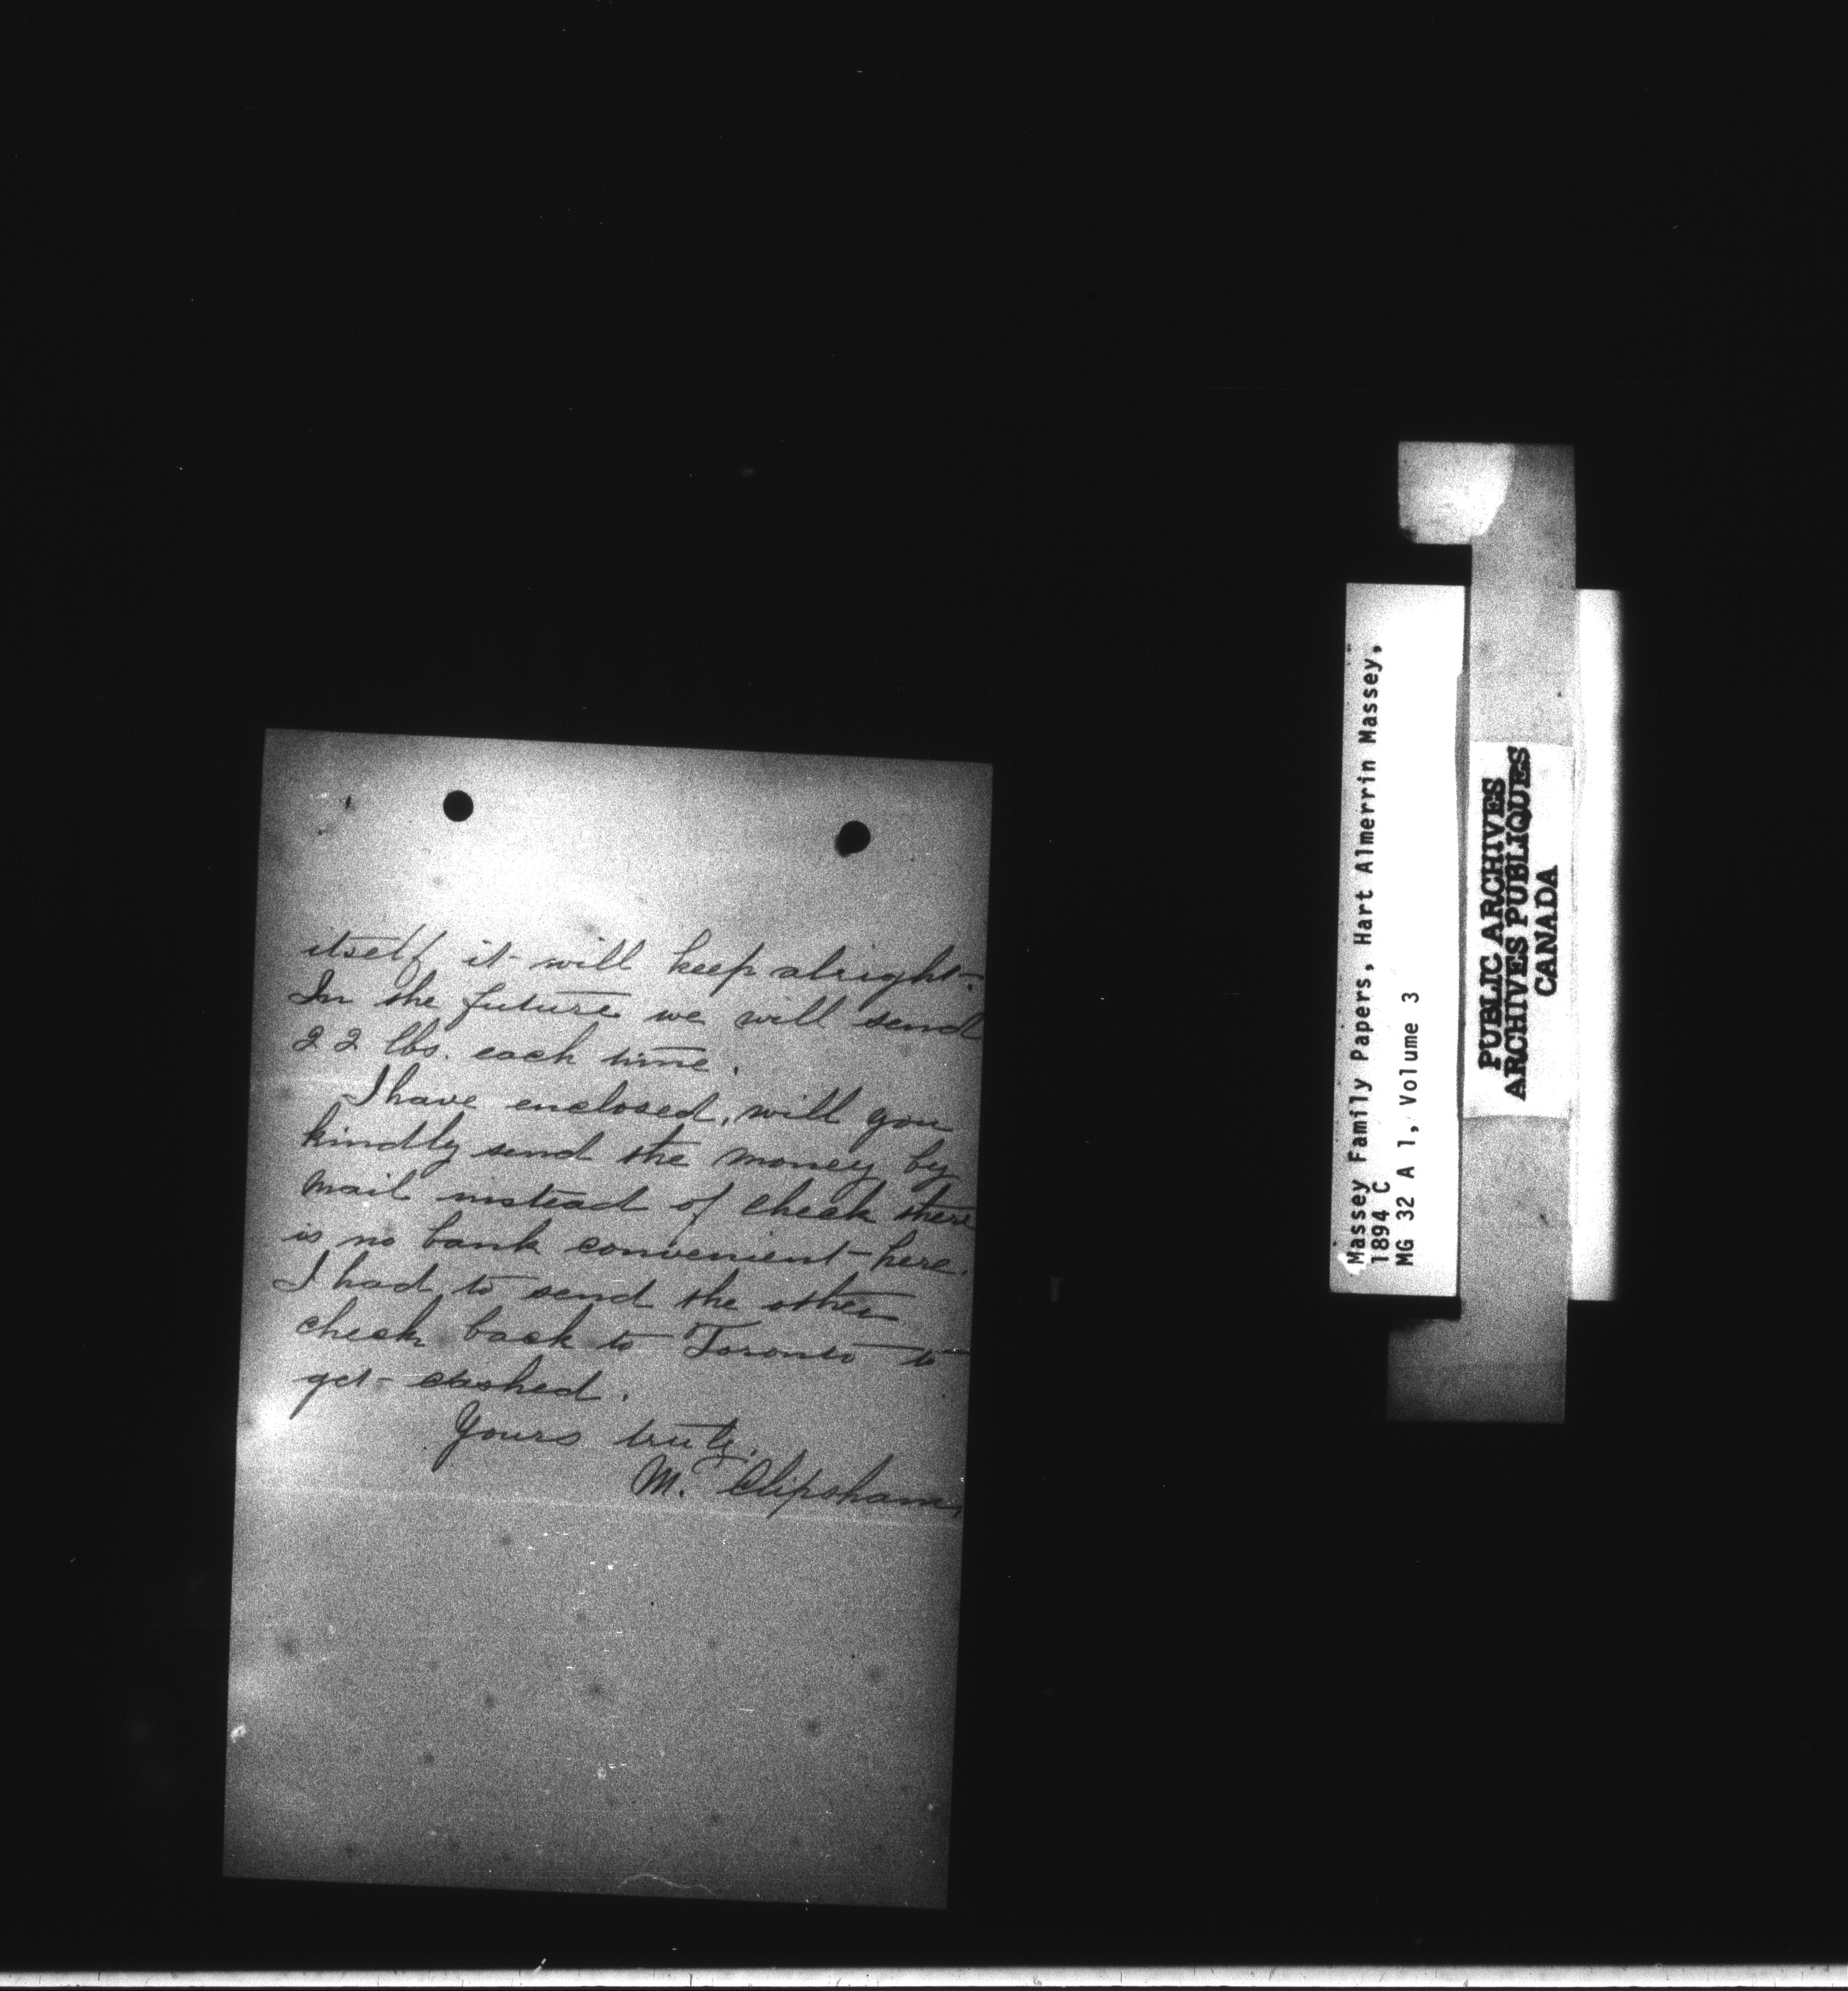 itself it will keep alright.
In the future we will send
22 lbs. each time.
I have enclosed, will you
kindly send the money by
mail instead of check there
is no bank convenient here.
I had to send the other
check back to Toronto to
get cashed.
Yours truly,
M. Clipsham,
Massey Family Papers, Hart Almerrin Massey,
1894 C
MG 32 A 1, Volume 3
PUBLIC ARCHIVES
ARCHIVES PUBLIQUES
CANADA